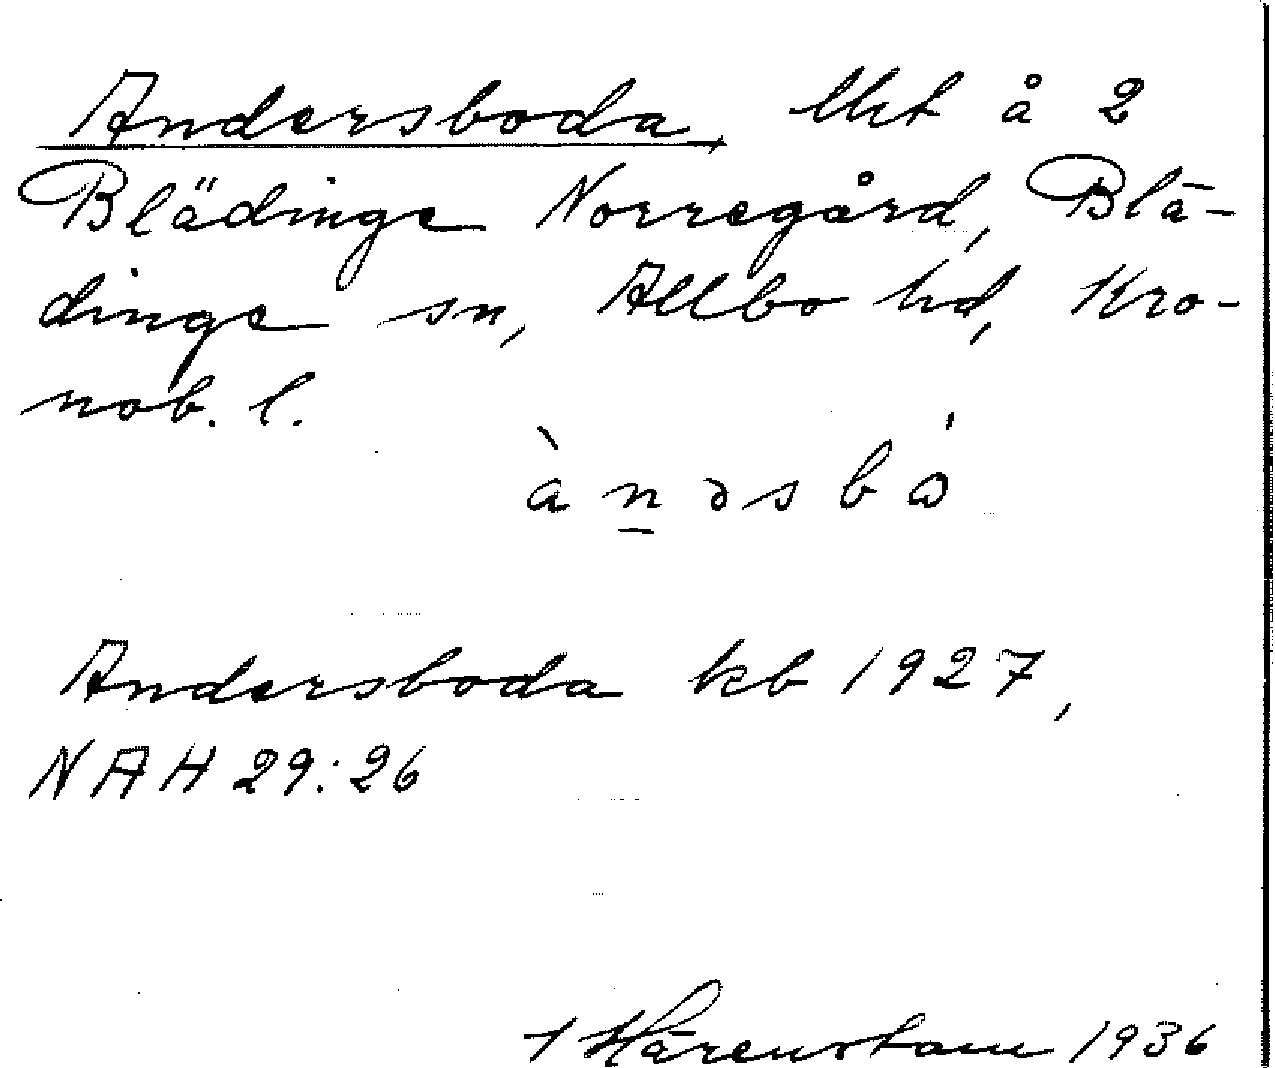 Andersboda, lht å 2
Blädinge Norregård, Blä-
dinge sn, Allbo hd, Kro-
nob. l.
à n̲ ə s b ó
Andersboda kb 1927,
NAH 29:26
Härenstam 1936